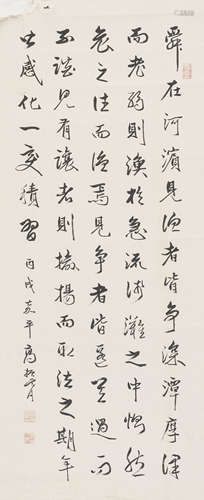 舜在河濱見漁者皆爭深潭厚澤
而老弱則漁於急流淺灘之中惻然
哀之往而漁焉見爭者皆匿其過而
不談見有讓者則揄揚而取法之期年
皆感化一變積習 丙戌嘉平 高振霄